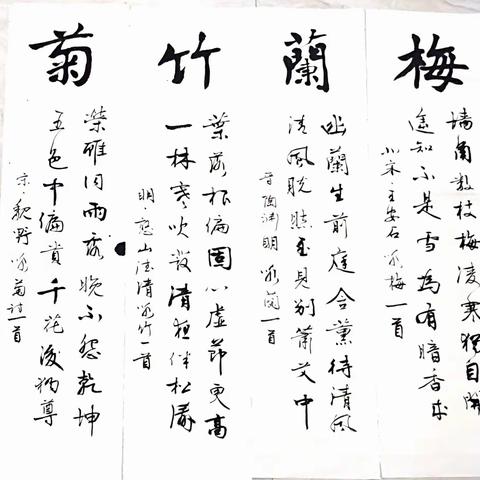 梅
墙角数枝梅凌寒独自開
遥知不是雪為有暗香来
北宋·王安石咏梅一首
蘭
幽蘭生前庭含薰待清風
清風脱然至見别蕭艾中
晋陶渊明咏蘭一首
竹
葉落根偏固心虚節更高
一林寒吹發清夜伴松濤
明·憨山德清咏竹一首
菊
榮雖同雨露晚不怨乾坤
五色中偏貴千花後獨尊
宋·魏野咏菊诗一首